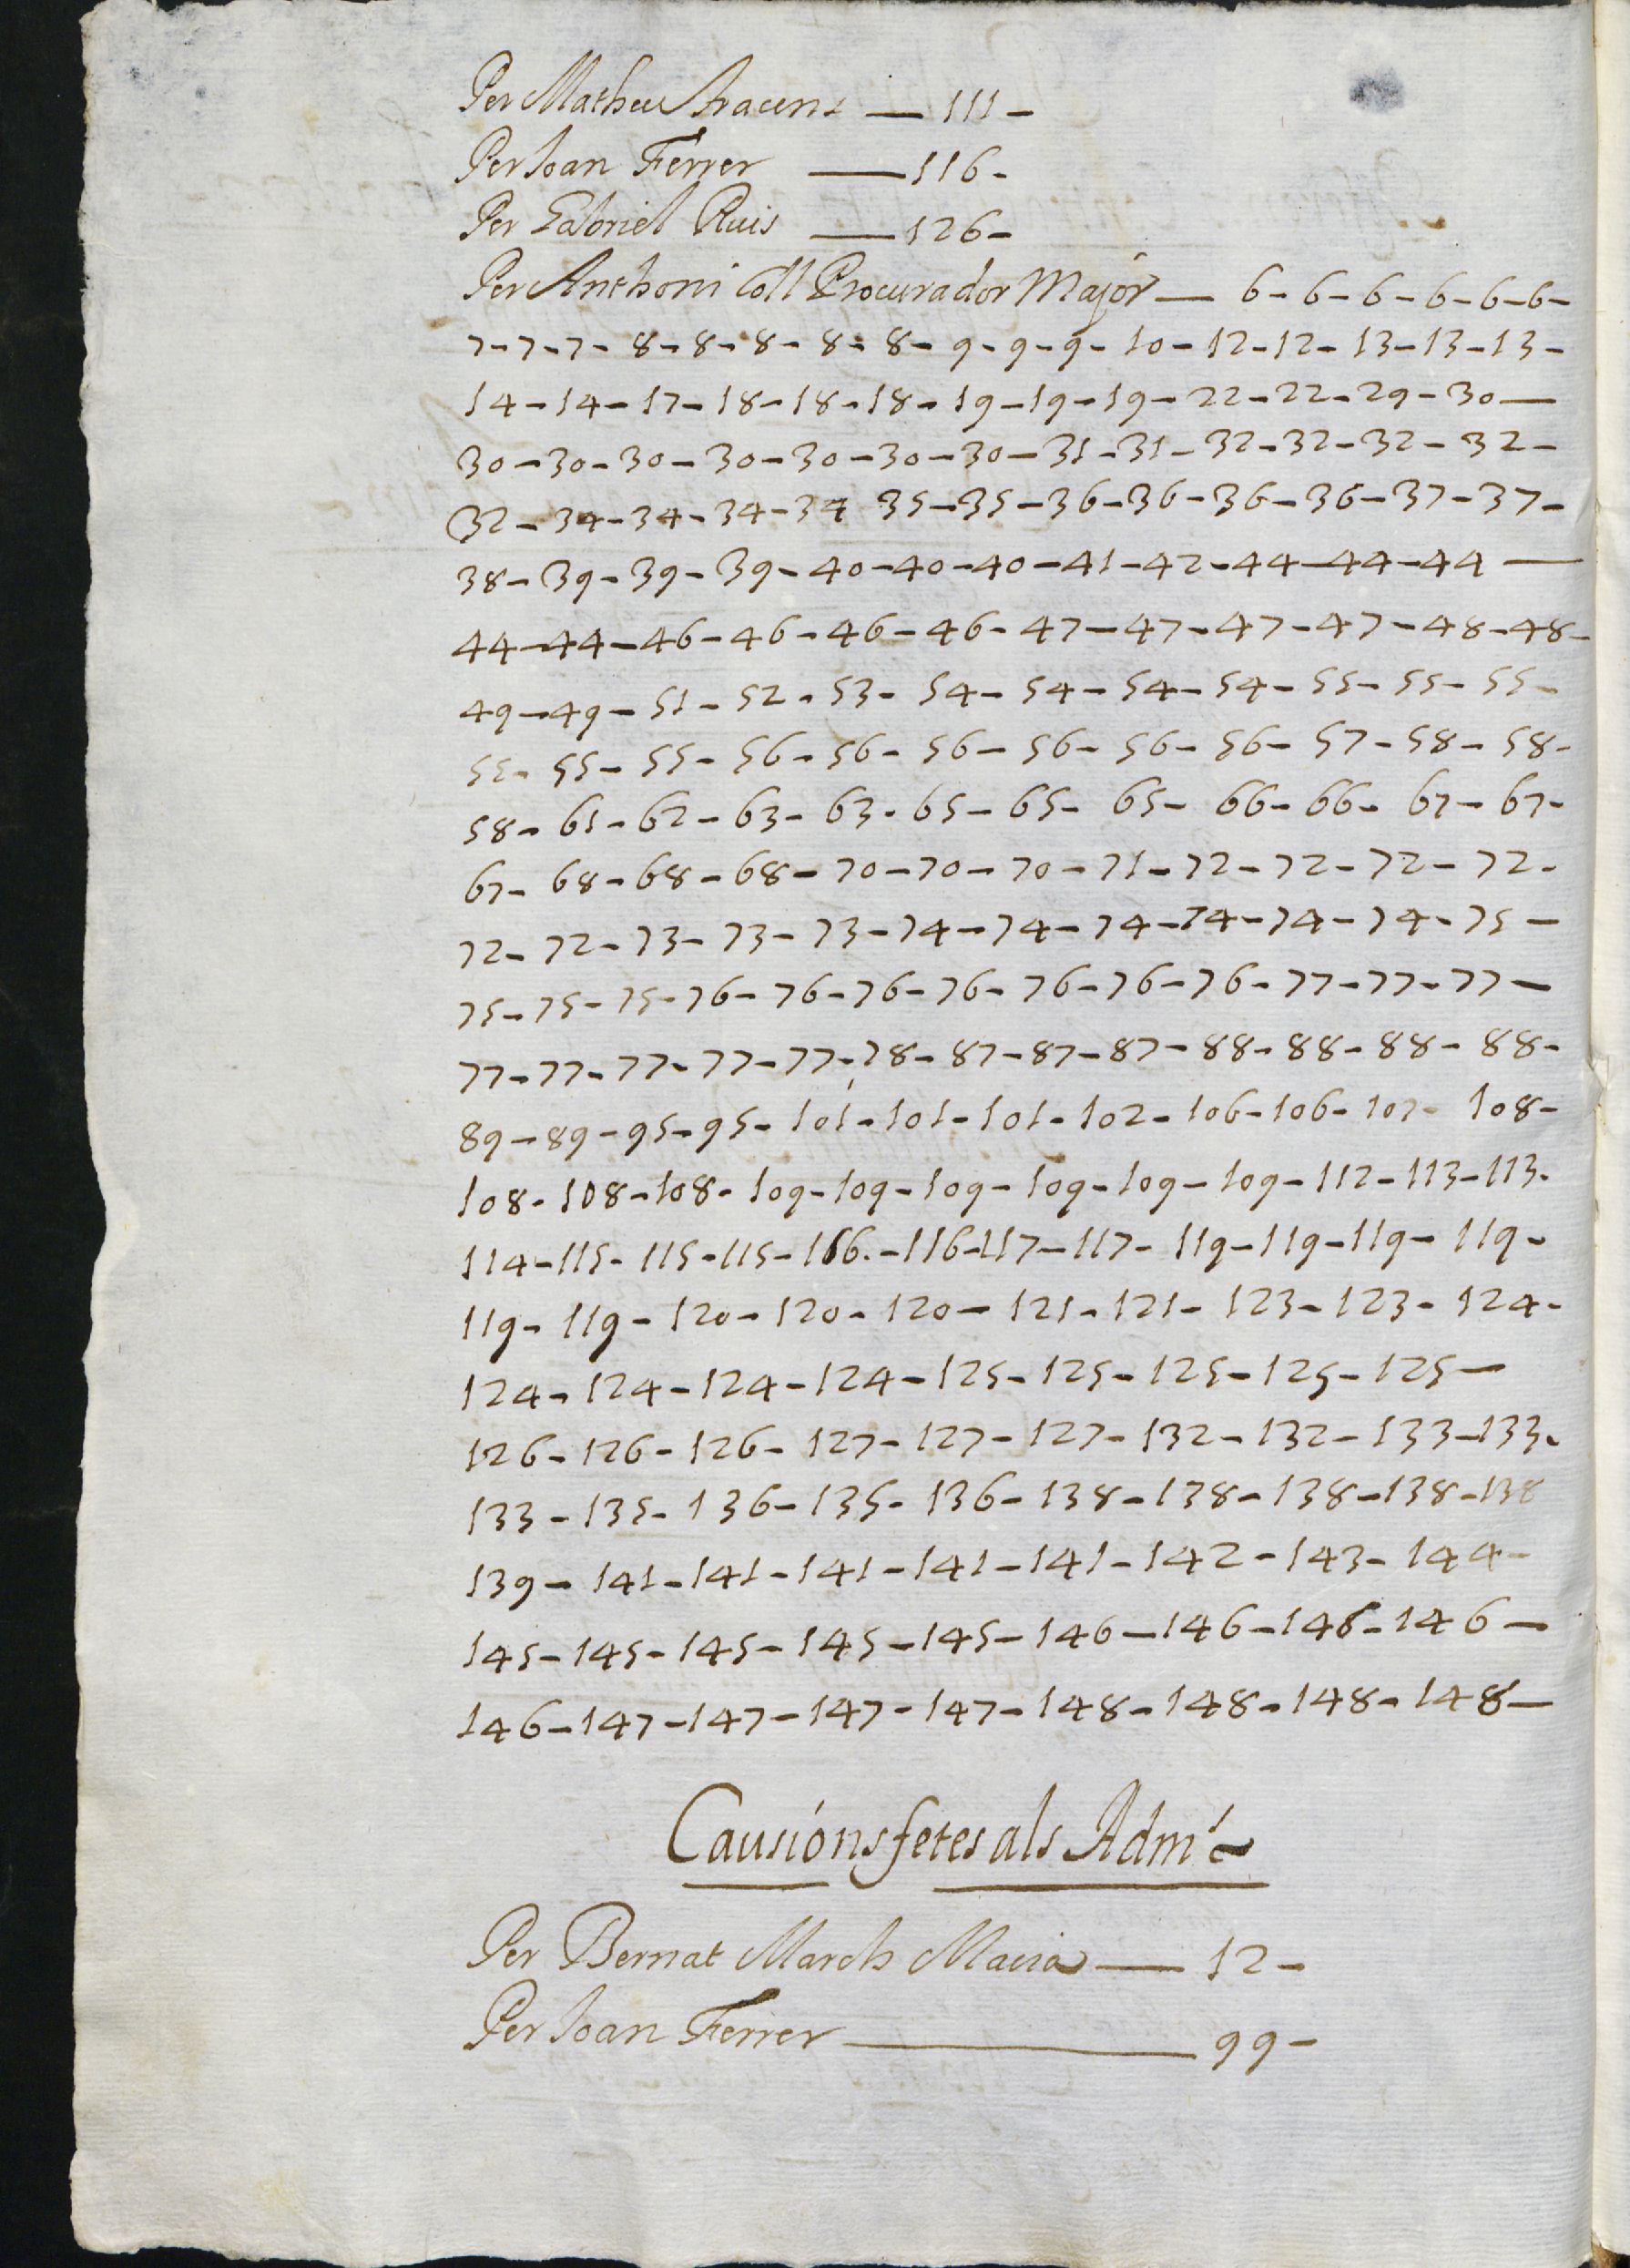 Per Matheu Aracent — 111 -
Per Joan Ferrer — 116 -
Per Gabriel Ruis — 126 -
Per Anthoni Coll Procurador Major — 6 - 6 - 6 - 6 - 6 - 6 -
7 - 7 - 7 - 8 - 8 - 8 - 8 - 8 - 9 - 9 - 9 - 10 - 12 - 12 - 13 - 13 - 13 -
14 - 14 - 17 - 18 - 18 - 18 - 19 - 19 - 19 - 22 - 22 - 29 - 30 —
30 - 30 - 30 - 30 - 30 - 30 - 30 - 31 - 31 - 32 - 32 - 32 - 32 -
32 - 34 - 34 - 34 - 34 35 - 35 - 36 - 36 - 36 - 36 - 37 - 37 -
38 - 39 - 39 - 39 - 40 - 40 - 40 - 41 - 42 - 44 - 44 - 44 —
44 - 44 - 46 - 46 - 46 - 46 - 47 - 47 - 47 - 47 - 48 - 48 -
49 - 49 - 51 - 52 - 53 - 54 - 54 - 54 - 54 - 55 - 55 - 55 -
55 - 55 - 55 - 56 - 56 - 56 - 56 - 56 - 56 - 57 - 58 - 58 -
58 - 61 - 62 - 63 - 63 - 65 - 65 - 65 - 66 - 66 - 67 - 67 -
67 - 68 - 68 - 68 - 70 - 70 - 70 - 71 - 72 - 72 - 72 - 72 -
72 - 72 - 73 - 73 - 73 - 74 - 74 - 74 - 74 - 74 - 74 - 75 -
75 - 75 - 75 - 76 - 76 - 76 - 76 - 76 - 76 - 76 - 77 - 77 - 77 -
77 - 77 - 77 - 77 - 77 - 78 - 87 - 87 - 87 - 88 - 88 - 88 - 88 -
89 - 89 - 95 - 95 - 101 - 101 - 101 - 102 - 106 - 106 - 107 - 108 -
108 - 108 - 108 - 109 - 109 - 109 - 109 - 109 - 109 - 112 - 113 - 113 -
114 - 115 - 115 - 115 - 116. - 116 - 117 - 117 - 119 - 119 - 119 - 119 -
119 - 119 - 120 - 120 - 120 - 121 - 121 - 123 - 123 - 124 -
124 - 124 - 124 - 124 - 125 - 125 - 125 - 125 - 125 —
126 - 126 - 126 - 127 - 127 - 127 - 132 - 132 - 133 - 133 -
133 - 135 - 136 - 135 - 136 - 138 - 138 - 138 - 138 - 138
139 - 141 - 141 - 141 - 141 - 141 - 142 - 143 - 144 -
145 - 145 - 145 - 145 - 145 - 146 - 146 - 146 - 146 -
146 - 147 - 147 - 147 - 147 - 148 - 148 - 148 - 148 —
Causions fetes als Adm
Per Bernat March Macia — 12 -
Per Joan Ferrer — 99 -